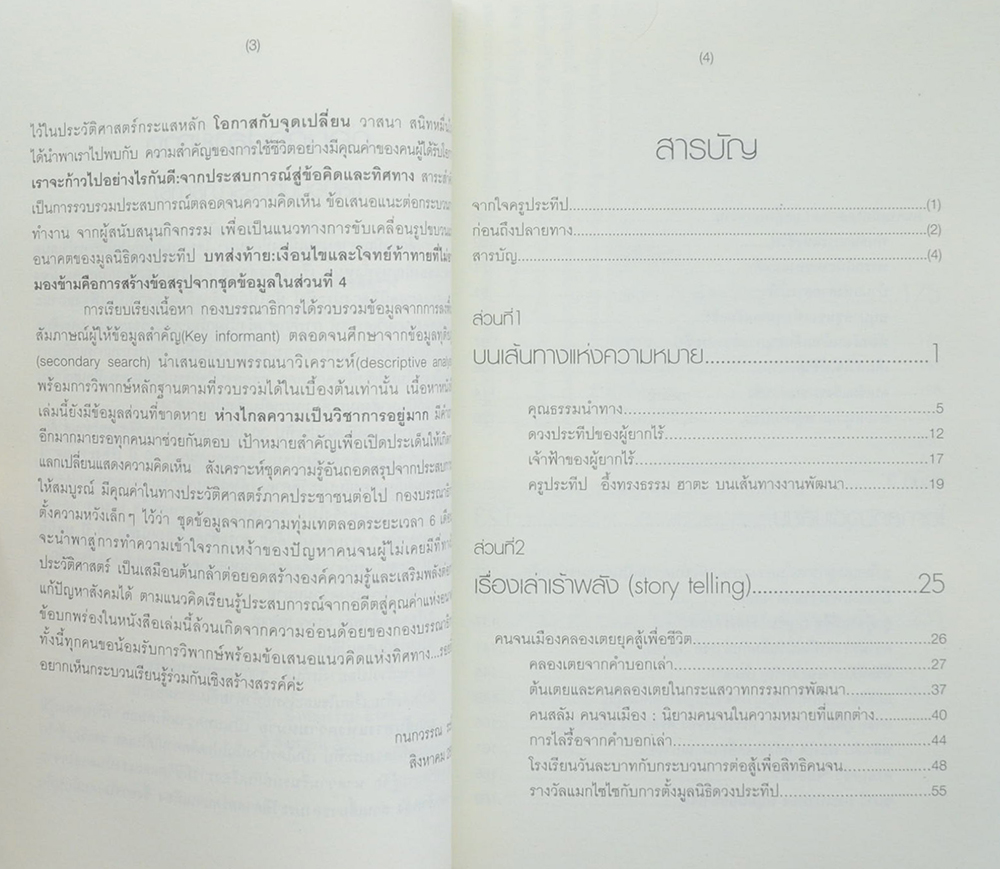 (3)
ไว้ในประวัติศาสตร์กระแสหลัก โอกาสกับจุดเปลี่ยน วาสนา
ได้นำพาเราไปพบกับ ความสำคัญของการใช้ชีวิตอย่างมีคุณค่าของคนผู้ได้รับ
เราจะก้าวไปอย่างไรกันดี:จากประสบการณ์สู่ข้อคิดและทิศทาง
เป็นการรวบรวมประสบการณ์ตลอดจนความคิดเห็น ข้อเสนอแนะต่อ
ทำงาน จากผู้สนับสนุนกิจกรรม เพื่อเป็นแนวทางการขับเคลื่อน
อนาคตของมูลนิธิดวงประทีป บทส่งท้าย:เงื่อนไขและโจทย์ท้าทายที่
มองข้ามคือการสร้างข้อสรุปจากชุดข้อมูลในส่วนที่ 4
การเรียบเรียงเนื้อหา กองบรรณาธิการได้รวบรวมข้อมูลจากการ
สัมภาษณ์ผู้ให้ข้อมูลสำคัญ(Key informant) ตลอดจนศึกษาจากข้อมูล
(secondary search) นำเสนอแบบพรรณนาวิเคราะห์(descriptive
พร้อมการวิพากษ์หลักฐานตามที่รวบรวมได้ในเบื้องต้นเท่านั้น เนื้อหา
เล่มนี้ยังมีข้อมูลส่วนที่ขาดหาย ห่างไกลความเป็นวิชาการอยู่มาก
อีกมากมายรอทุกคนมาช่วยกันตอบ เป้าหมายสำคัญเพื่อเปิดประเด็นให้
แลกเปลี่ยนแสดงความคิดเห็น สังเคราะห์ชุดความรู้อันถอดสรุปจาก
ให้สมบูรณ์ มีคุณค่าในทางประวัติศาสตร์ภาคประชาชนต่อไป
ตั้งความหวังเล็กๆ ไว้ว่า ชุดข้อมูลจากความทุ่มเทตลอดระยะเวลา 6
จะนำพาสู่การทำความเข้าใจรากเหง้าของปัญหาคนจนผู้ไม่เคยมี
ประวัติศาสตร์ เป็นเสมือนต้นกล้าต่อยอดสร้างองค์ความรู้และ
แก้ปัญหาสังคมได้ ตามแนวคิดเรียนรู้ประสบการณ์จากอดีตสู่คุณค่าแห่ง
ข้อบกพร่องในหนังสือเล่มนี้ล้วนเกิดจากความอ่อนด้อยของ
ทั้งนี้ทุกคนขอน้อมรับการวิพากษ์พร้อมข้อเสนอแนวคิดแห่งทิศทาง...
อยากเห็นกระบวนเรียนรู้ร่วมกันเชิงสร้างสรรค์ค่ะ
กนกวรรณ
สิงหาคม
(4)
สารบัญ
จากใจครูประทีป...(1)
ก่อนถึงปลายทาง...(2)
สารบัญ...(4)
ส่วนที่1
บนเส้นทางแห่งความหมาย...1
คุณธรรมนำทาง...5
ดวงประทีปของผู้ยากไร้...12
เจ้าฟ้าของผู้ยากไร้...17
ครูประทีป อึ้งทรงธรรม ฮาตะ บนเส้นทางงานพัฒนา...19
ส่วนที่2
เรื่องเล่าเร้าพลัง (story telling)...25
คนจนเมืองคลองเตยยุคสู้เพื่อชีวิต...26
คลองเตยจากคำบอกเล่า...27
ต้นเตยและคนคลองเตยในกระแสวาทกรรมการพัฒนา...37
คนสลัม คนจนเมือง : นิยามคนจนในความหมายที่แตกต่าง...40
การไล่รื้อจากคำบอกเล่า...44
โรงเรียนวันละบาทกับกระบวนการต่อสู้เพื่อสิทธิคนจน...48
รางวัลแมกไซไซกับการตั้งมูลนิธิดวงประทีป...55